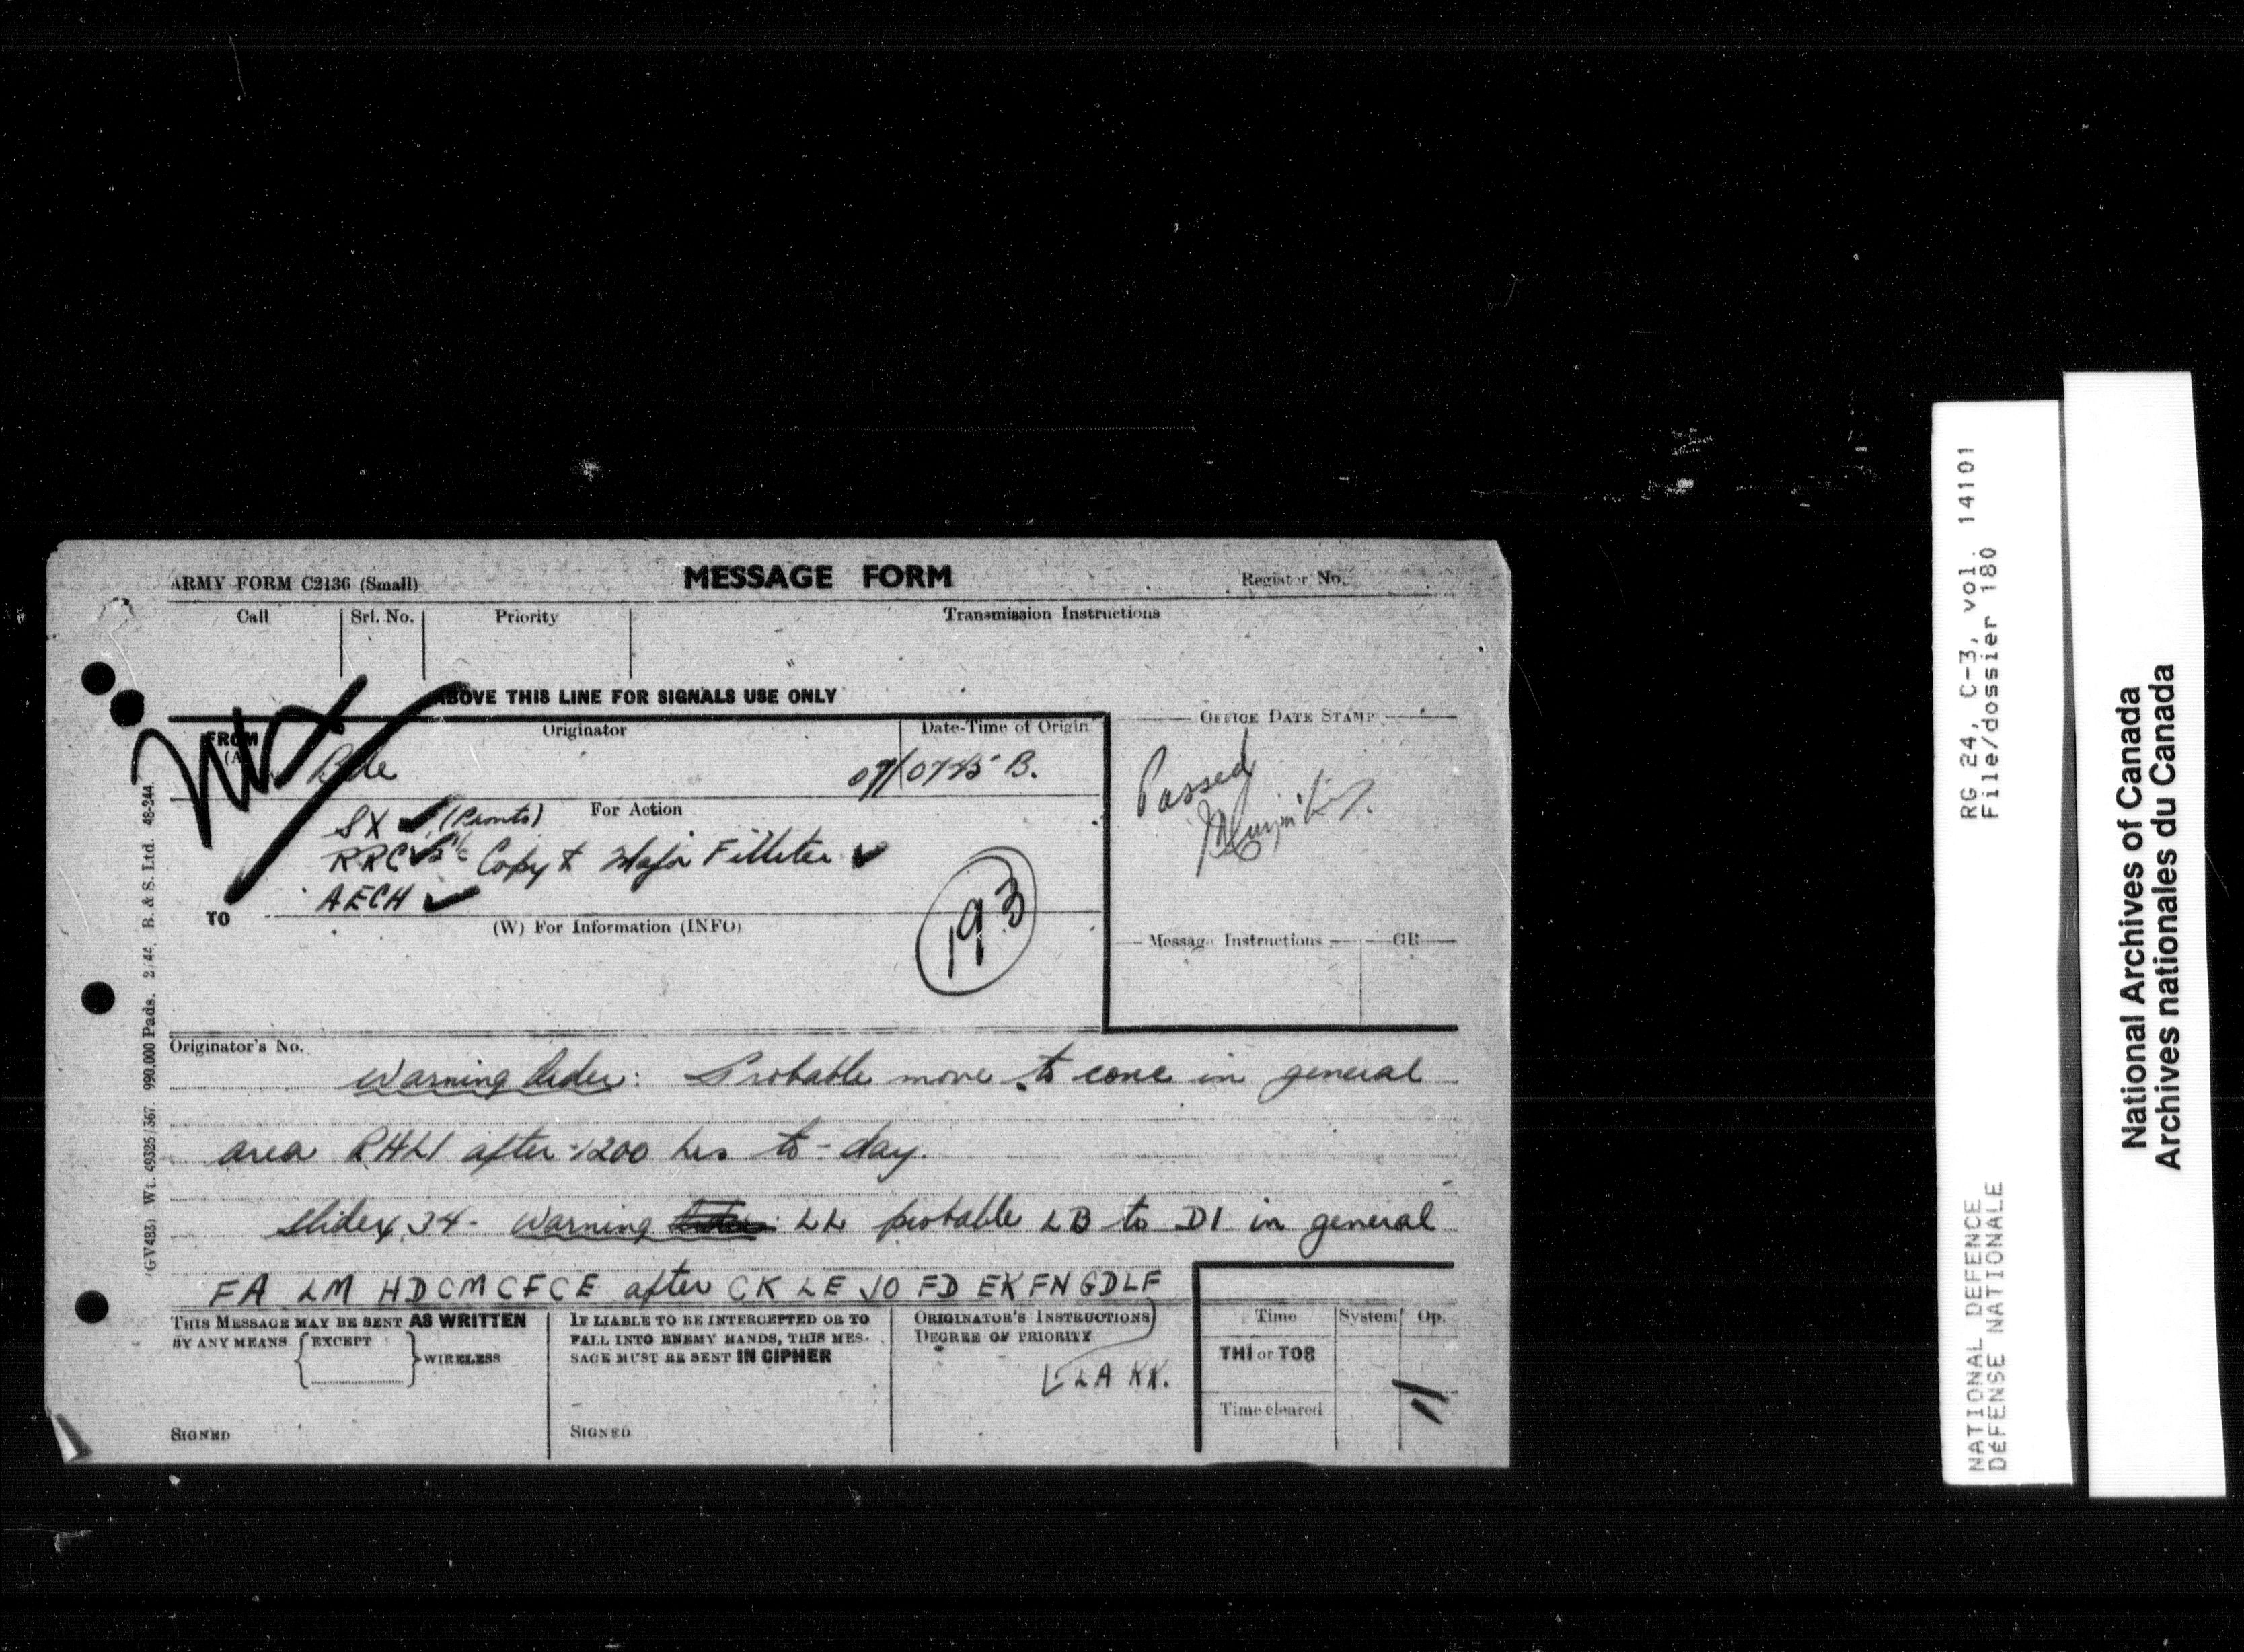 ARMY FORM C2136 (Small)
MESSAGE FORM
Register No.
Call
Srl. No.
Priority
Transmission Instructions
ABOVE THIS LINE FOR SIGNALS USE ONLY
FROM
(A)
Originator
Date-Time of Origin
OFFICE DATE STAMP
Bde
07/0745 B.
Passed
For Action
SX
RRC
Copy to Major
AECH
TO
(W) For Information (INFO)
193
Message Instructions
GR
Originator's No.
Warning Order: Probable move to conc in general
area RHLI after 1200 hrs to-day.
Slidex 34- Warning LL probable LB to DI in general
FA LM HDCMCFCE after CK LE JO FD EKFNGDLF
LA KK.
THIS MESSAGE MAY BE SENT AS WRITTEN
BY ANY MEANS EXCEPT WIRELESS
SIGNED
IF LIABLE TO BE INTERCEPTED OR TO
FALL INTO ENEMY HANDS, THIS MES-
SAGE MUST BE SENT IN CIPHER
SIGNED
ORIGINATOR'S INSTRUCTIONS
DEGREE OF PRIORITY
Time
System
Op.
THI or TOR
Time cleared
(GV483) Wt. 49325/367. 990,000 Pads. 2/44. B. & S. Ltd. 48-244.
RG 24, C-3, vol. 14101
File/dossier 180
NATIONAL DEFENCE
DÉFENSE NATIONALE
National Archives of Canada
Archives nationales du Canada